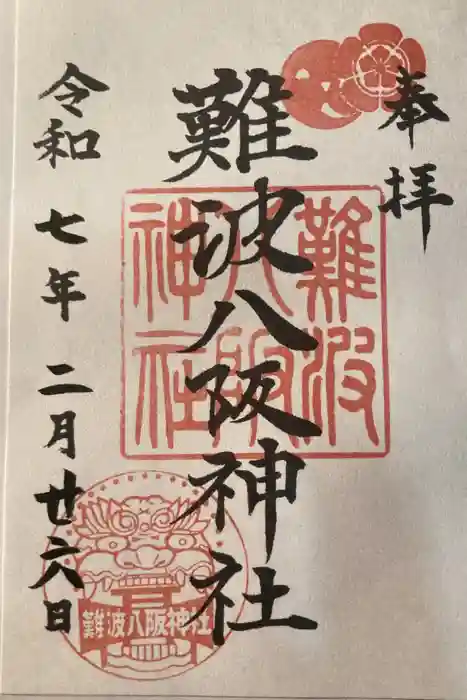 奉拝
難波八阪神社
令和七年二月廿六日
難波
八阪
神社
難波八阪神社